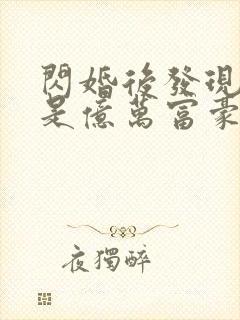 閃婚後發現
是億萬富豪
夜獨醉